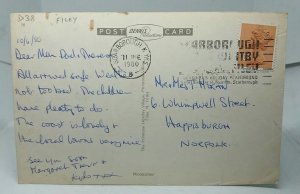 D38
FILEY
10/6/80
POST CARD
Dear Mum, Dad, & Theresa
All arrived safe. Weather
not too bad. The children
have plenty to do.
The coast is lovely &
the local towns very nice.
See you soon
Margaret Trevor &
SCARBOROUGH
11 JUNE
1980
SCARBOROUGH
WHITBY
FILEY
HOLIDAY PLAYGROUND
Mr & Mrs T Hixon
6 Whimpwell Street
Happisburgh
Norfolk